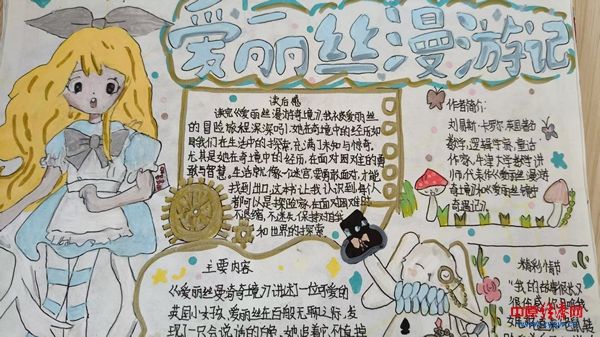 爱丽丝漫游记
读后感
读完《爱丽丝漫游奇境》,我被爱丽丝
的冒险旅程深深吸引,她在奇境中的经历如
同我们在生活中的探索,充满了未知与传奇
尤其是她在奇境中的经历,在面对困难时的勇
敢与智慧,生活就像一个迷宫,要勇敢面对,才能
找到出口,这本书让我认识到每个人
都可以是探险家,在面对困难时
不退缩,不迷失,保持对自我
和世界的探索
作者简介:
刘易斯·卡罗尔,英国著名
数学,逻辑学家,童话
作家,牛津大学数学讲
师,代表作《爱丽丝漫游
奇境》和《爱丽丝镜中
奇遇记》
主要内容
《爱丽丝漫游奇境》讲述了一位可爱的
英国小女孩,爱丽丝在百般无聊之际,发
现了一只会说话的白兔,她追着它不慎掉
精彩情节
"我的故事很长又
很伤感,
中原经济网